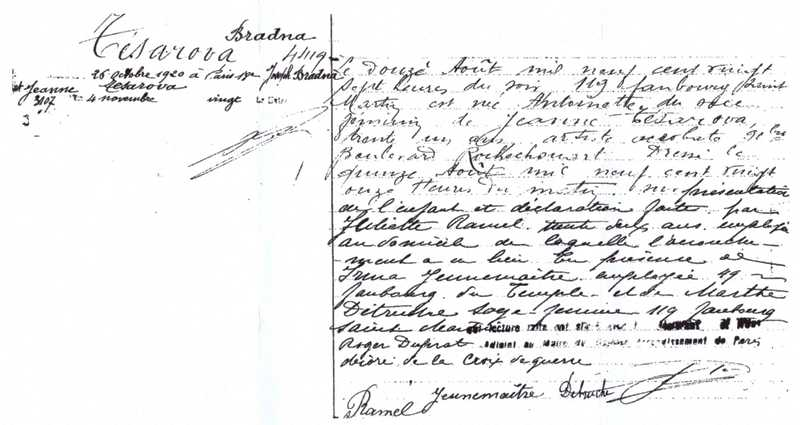 Bradna
Tesarova
4119
26 octobre 1920 à Paris Joseph Bradna
et Jeanne Tesarova
3107 4 novembre vingt
3
Le douze Août mil neuf cent vingt
sept heures du soir 119 faubourg Saint
Martin est née Antoinette du sexe
féminin de Jeanne Tesarova,
trente un ans artiste acrobate
Boulevard Rochechouart Dressé le
quinze Août mil neuf cent vingt
onze heures du matin sur présentation
de l'enfant et déclaration faite par
Juliette Ramel trente ans employée
au domicile de laquelle l'accouche-
ment a eu lieu En présence de
Irma Jeunemaître employée 49
faubourg du Temple et de Marthe
Détruche Sage femme 119 faubourg
Saint Martin lecture faite ont signé avec
Roger Duprat adjoint au Maire du arrondissement de Paris
décoré de la Croix de guerre
Ramel Jeunemaître Détruche